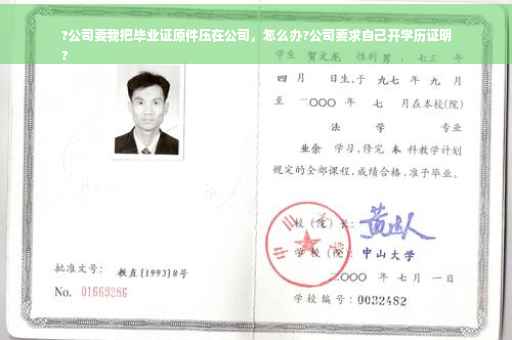 ?公司要我把毕业证原件压在公司，怎么办?公司要求自己开学历证明
?
学生 贺文龙 性别男
四 月 日生,于 九七 年 九 月
至 二〇〇〇 年 七 月在本校(院)
法 学 专业
业余 学习,修完 本 科教学计划
规定的全部课程,成绩合格,准予毕业。
校(院)长:
学校(院): 中山大学
批准文号: 教直[1993]8号
二〇〇〇 年 七 月 一 日
No. 01663286
学校编号: 0032482